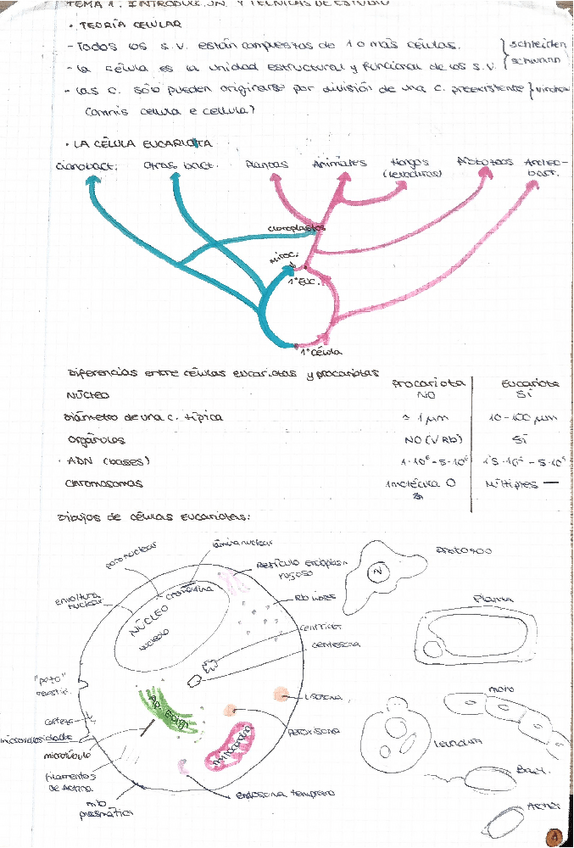 TEMA 1. INTRODUCCIÓN Y TÉCNICAS DE ESTUDIO
· TEORÍA CELULAR
- Todos los s.v. están compuestas de 1 o más células.
- La célula es la unidad estructural y funcional de los s.v.
} schleiden
schwann
- Las c. sólo pueden originarse por división de una c. preexistente } virchow
(omnis cellula e cellula)
· LA CÉLULA EUCARIOTA
cianobact. Otras bact. Plantas Animales Hongos Protozoos Arqueo-
(levaduras) bact.
cloroplastos
mitoc.
1ª EUC.
1ª célula
Diferencias entre células eucariotas y procariotas
Procariota Eucariota
NÚCLEO NO SÍ
Diámetro de una c. típica ≈ 1 μm 10-100 μm
Orgánulos NO (V Rb) SÍ
· ADN (bases) 1·10⁶-5·10⁶
Chromosomas 1 molécula O Múltiples —
Dibujos de células eucariotas:
poro nuclear
lámina nuclear
envoltura nuclear
cromatina
NÚCLEO
nucleolo
Retículo endoplasm
rugoso
Rb libres
centriolos
centrosoma
Ap. Golgi
lisosoma
peroxisoma
mitocondria
endosoma temprano
microtúbulo
filamentos
de actina
mb
plasmática
protozoo
N
Planta
moho
levadura
Bact.
4